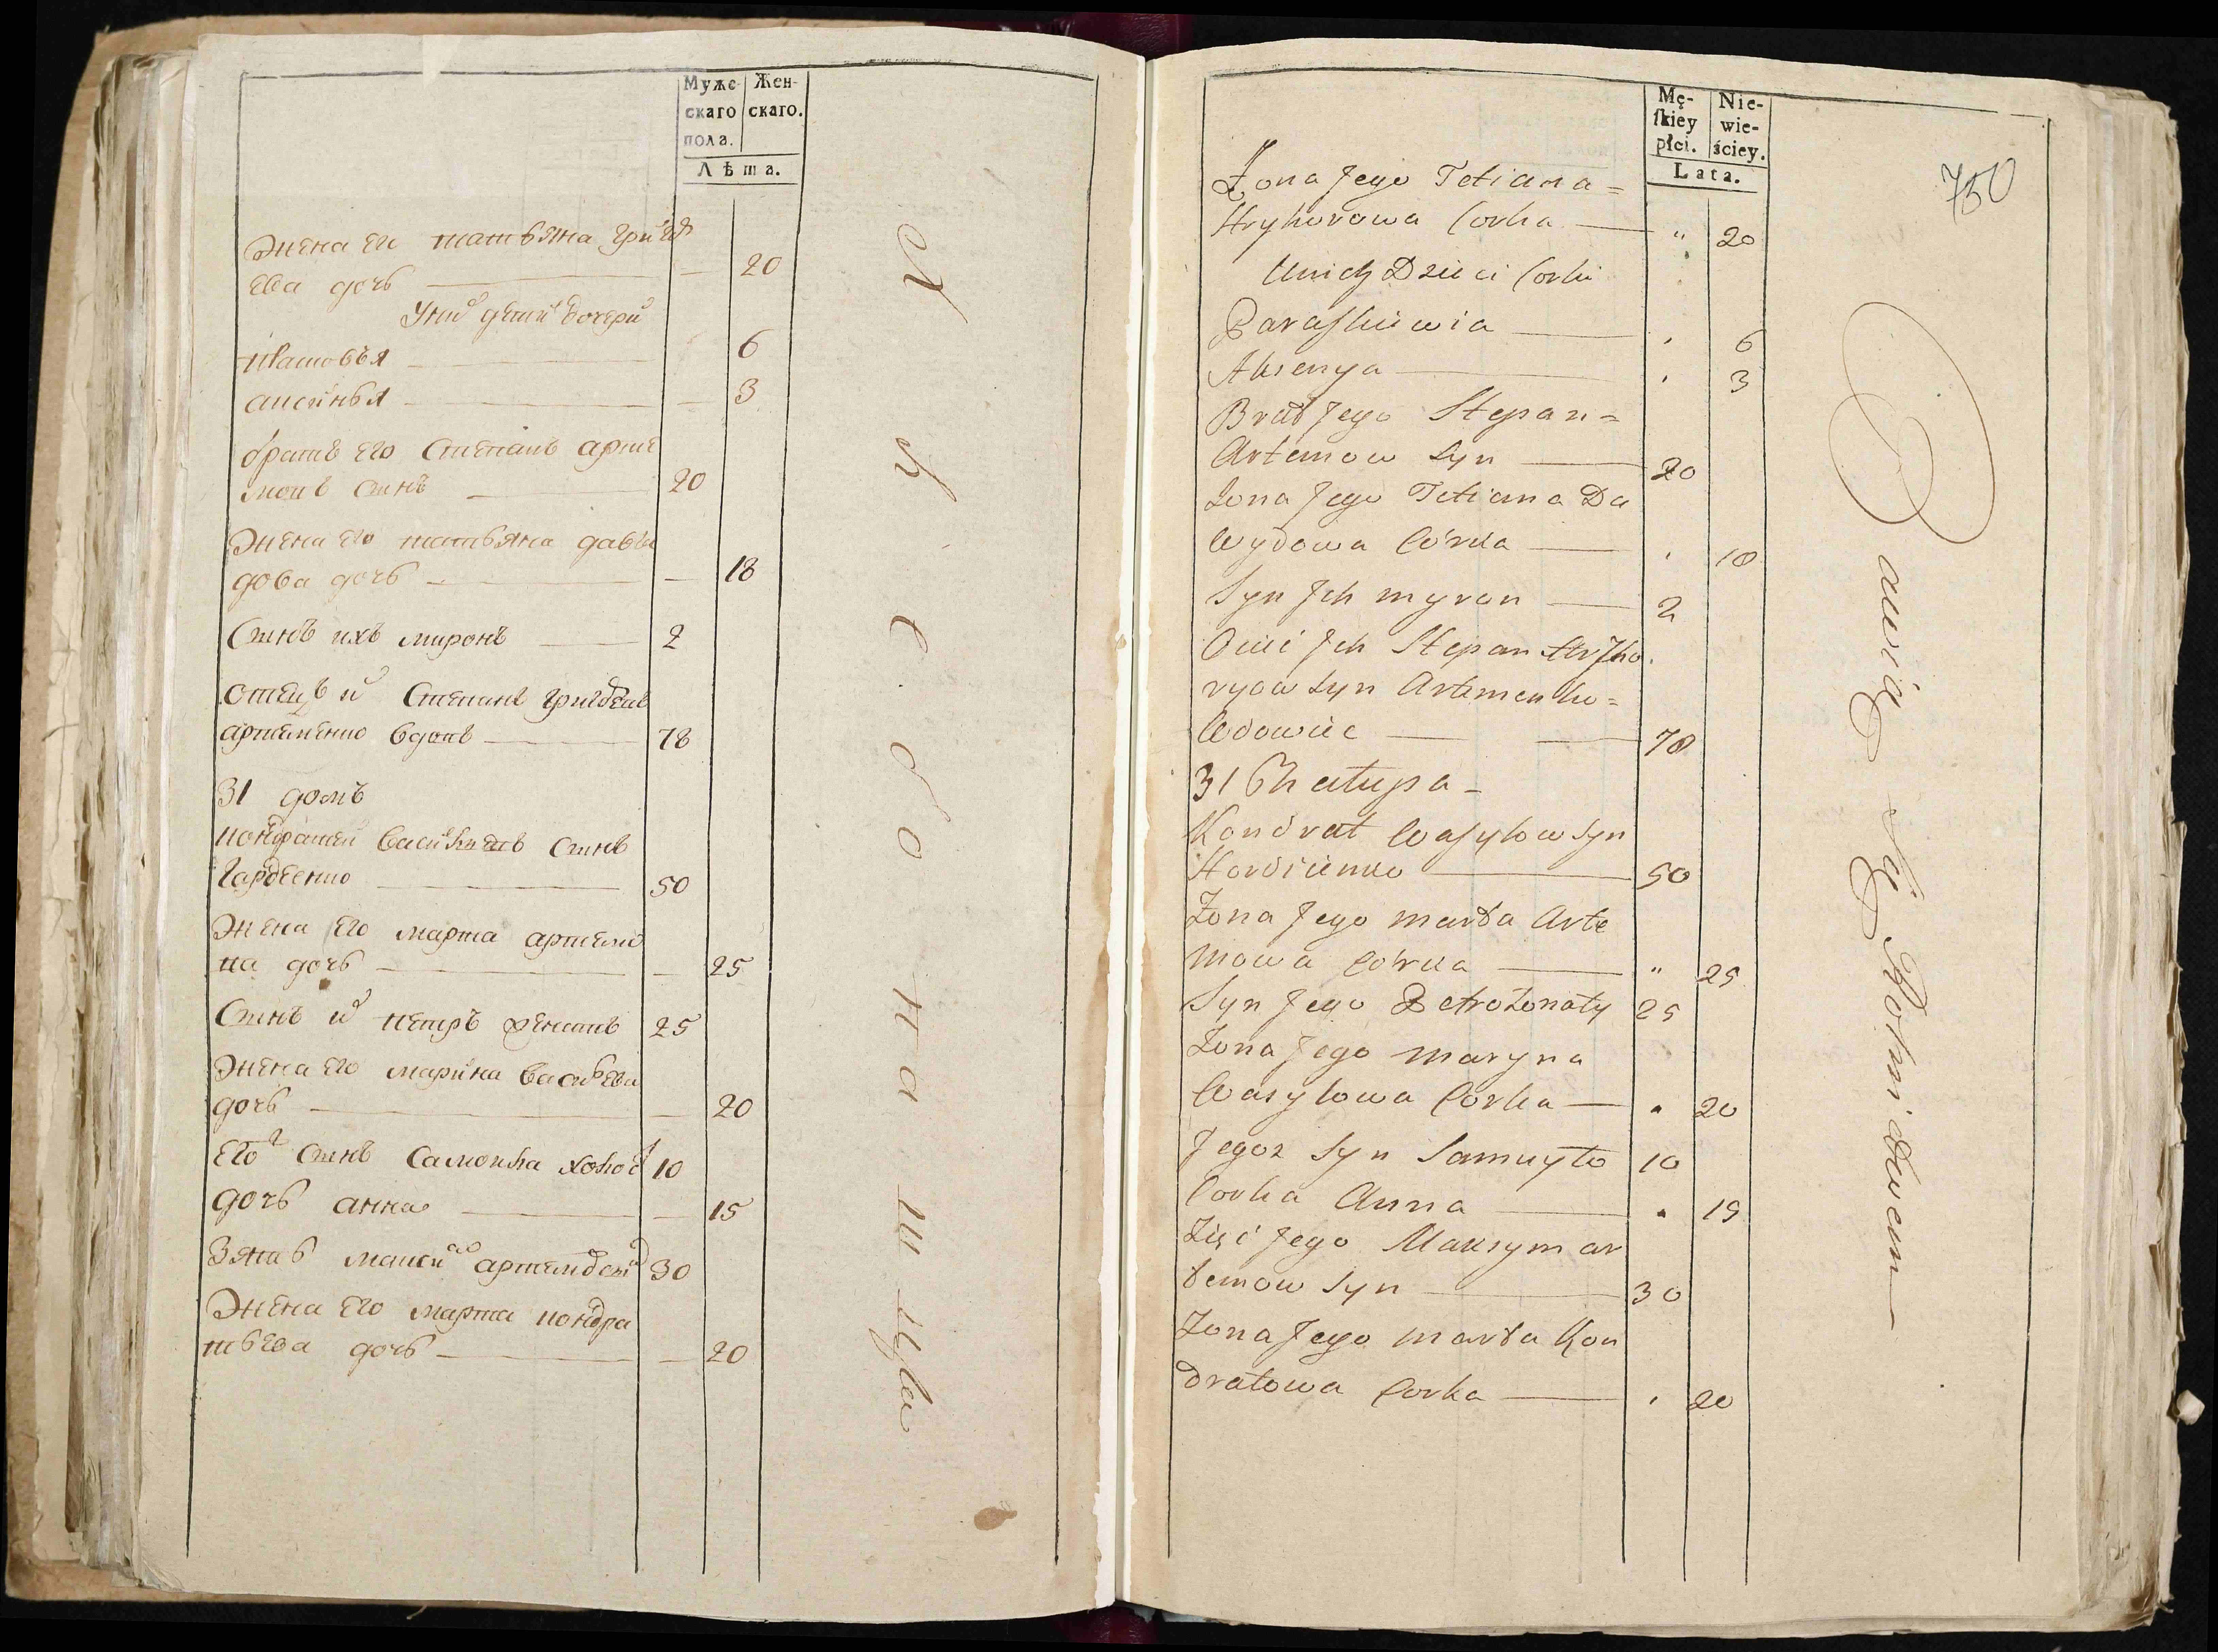 Мужс- Жен-
скаго скаго.
пола.
Лѣта.
Жена его татьяна григор
ева дочь — 20
У них детей дочери
6
аксинья — 3
братъ его Степанъ арте
мовъ сынъ 20
Жена его татьяна давы
дова дочь — 18
Сынъ ихъ миронъ 2
отецъ их Степанъ григорьевъ
артеменко вдовъ 78
31 домъ
кондратей васильевъ сынъ
гордеенко 50
Жена его марта артемо
ва дочь — 25
Сынъ их петръ женатъ 25
Жена его марина васильева
дочь — 20
его сынъ самойла холост 10
дочь анна — 15
Зять максим артемов сын 30
Жена его марта кондра
тьева дочь — 20
Mę- Nie-
ſkiey wie-
płci. ściey.
Lata.
750
Żona Jego Tetiana =
Hryhorowa Corka " 20
Unich Dzieci Corki
Paraſkiewia 6
Aksenya 3
Brat Jego Stepan =
Artemow Syn 20
Zona Jego Tetiana Da
wydowa Córka 18
Syn Ich myron 2
Ociec Ich Stepan Hryho
ryow Syn Artemenko =
Wdowiec 78
31 Chałupa -
Kondrat Wasylow Syn
Hordienko 50
Zona Jego marta Arte
mowa Córka " 25
Syn Jego Petro Zonaty 25
Zona Jego maryna
Wasylowa Corka 20
Jegoz Syn Samuyło 10
Corka Anna 15
Zięć Jego Maksym ar
temow Syn 30
Zona Jego marta Kon
dratowa Corka 20